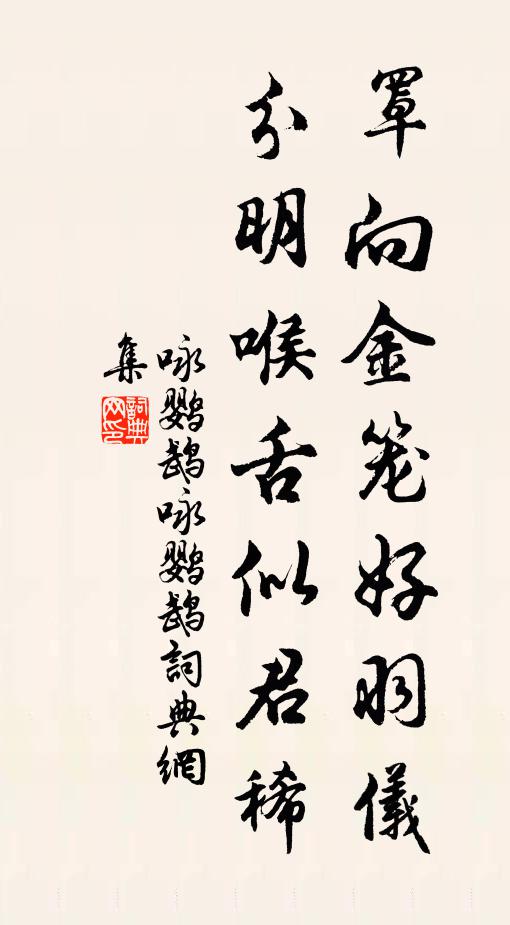 罩向金笼好羽儀
分明喉舌似君稀
咏鹦鹉咏鹦鹉詞典網
集
詞典网印